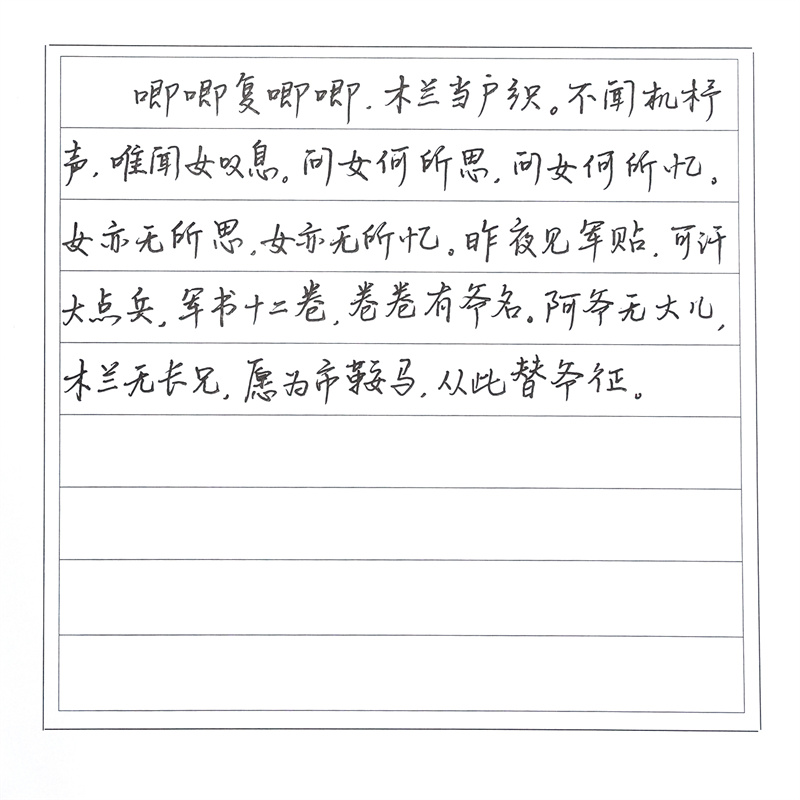 唧唧复唧唧，木兰当户织。不闻机杼
声，唯闻女叹息。问女何所思，问女何所忆。
女亦无所思，女亦无所忆。昨夜见军贴，可汗
大点兵，军书十二卷，卷卷有爷名。阿爷无大儿，
木兰无长兄，愿为市鞍马，从此替爷征。